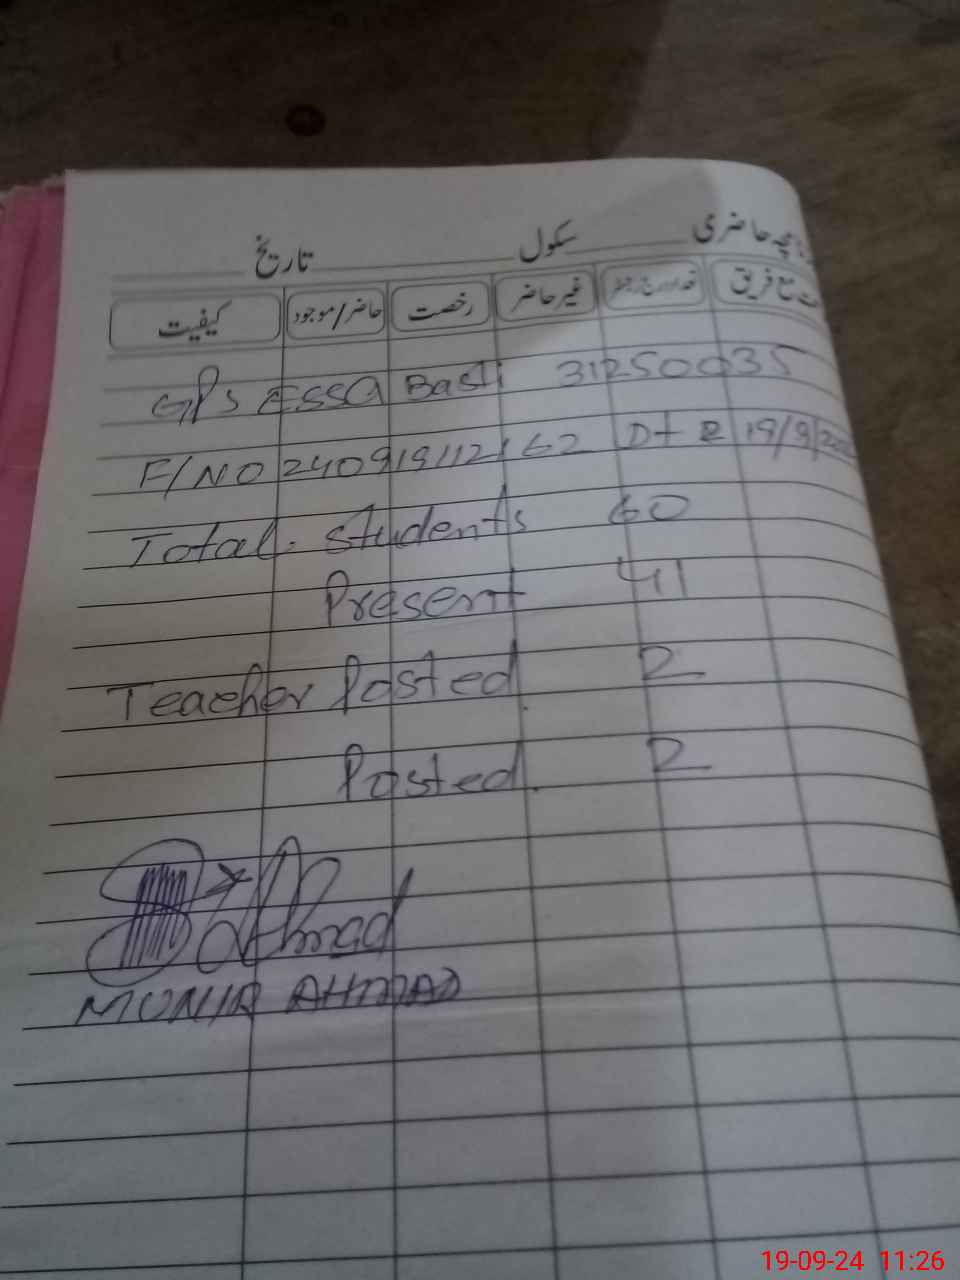 حاضری سکول تاریخ
مع فریق غیر حاضر رخصت حاضر/موجود کیفیت
GPS ESSA Basti 31250035
F/NO 240919112162 Dt 19/9/
Total. students 60
Present 41
Teacher Posted 2
Posted. 2
Ahmad
MUNIR AHMAD
19-09-24 11:26